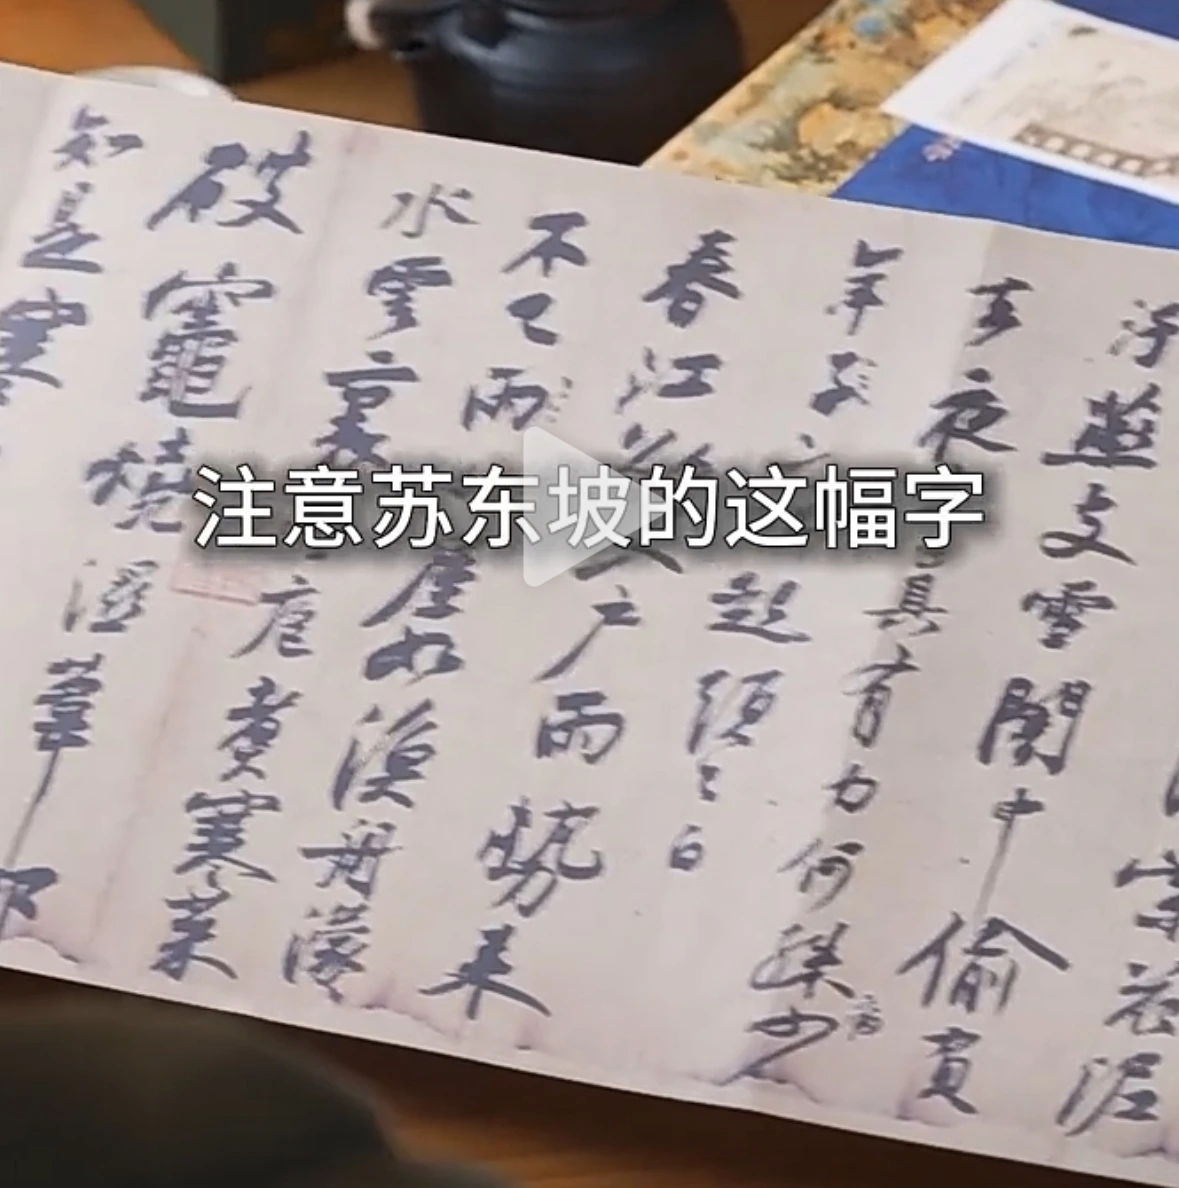 棠花泥
汙燕支雪闇中偷負
去夜真有力何殊少
年子起頭已白
春江欲入戶雨勢來
不已雨屋如漁舟濛
水雲裏庖煮寒菜
破竈燒濕葦那
知是寒
注意苏东坡的这幅字